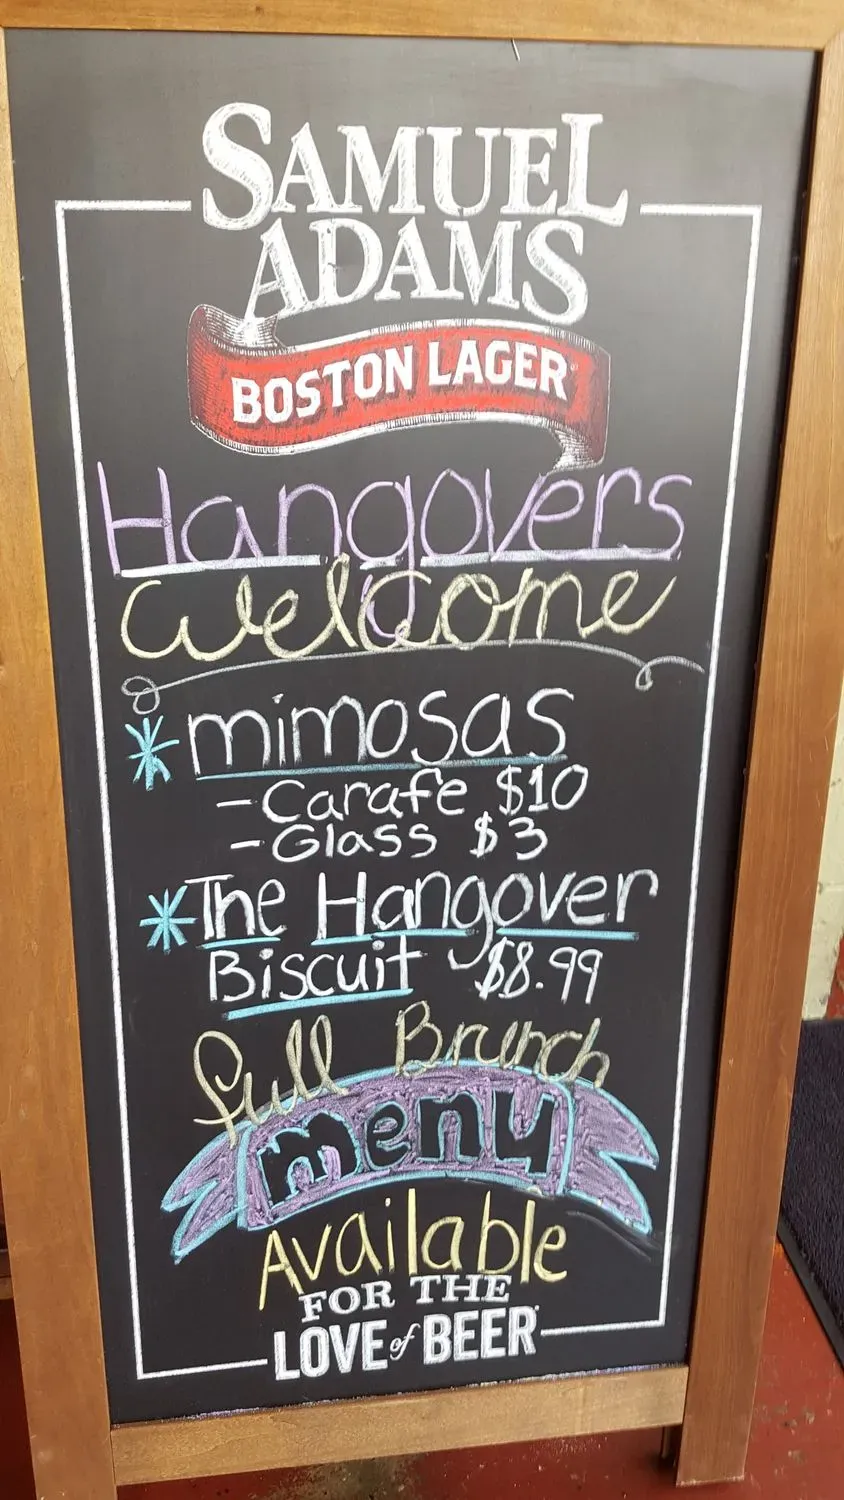 SAMUEL
ADAMS
BOSTON LAGER
Hangovers
Welcome
* mimosas
- Carafe $10
- Glass $3
* The Hangover
Biscuit $8.99
full Brunch
menu
Available
FOR THE
LOVE of BEER